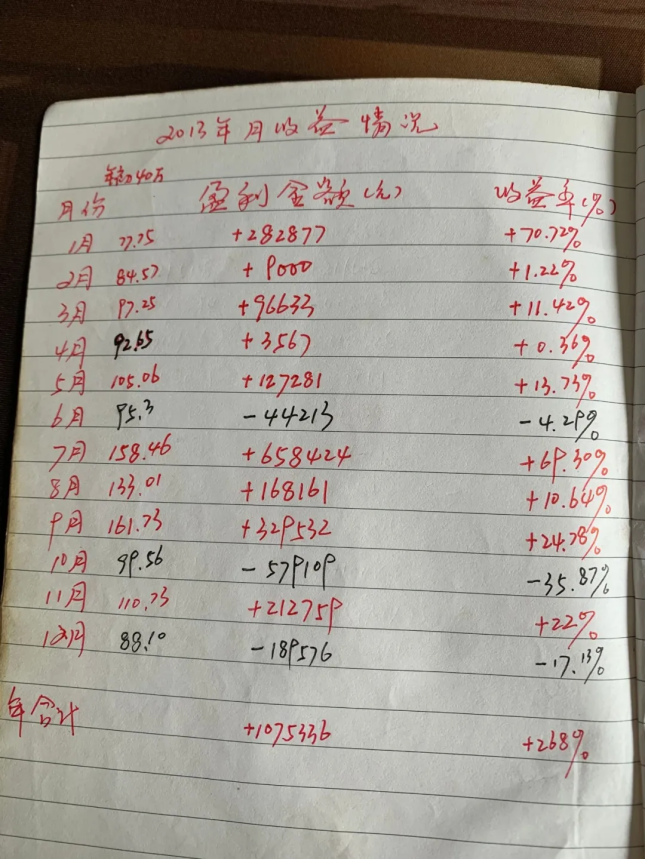 2013年月收益情况
年初40万
月份 盈利金额(元) 收益率(%)
1月 77.75 +282877 +70.72%
2月 84.57 +9000 +1.22%
3月 97.25 +96633 +11.42%
4月 92.65 +3567 +0.36%
5月 105.06 +127281 +13.73%
6月 95.3 -44213 -4.29%
7月 158.46 +658424 +69.30%
8月 133.01 +168161 +10.64%
9月 161.73 +329532 +24.78%
10月 99.56 -579109 -35.87%
11月 110.73 +212759 +22%
12月 88.10 -189576 -17.13%
年合计 +1075336 +268%